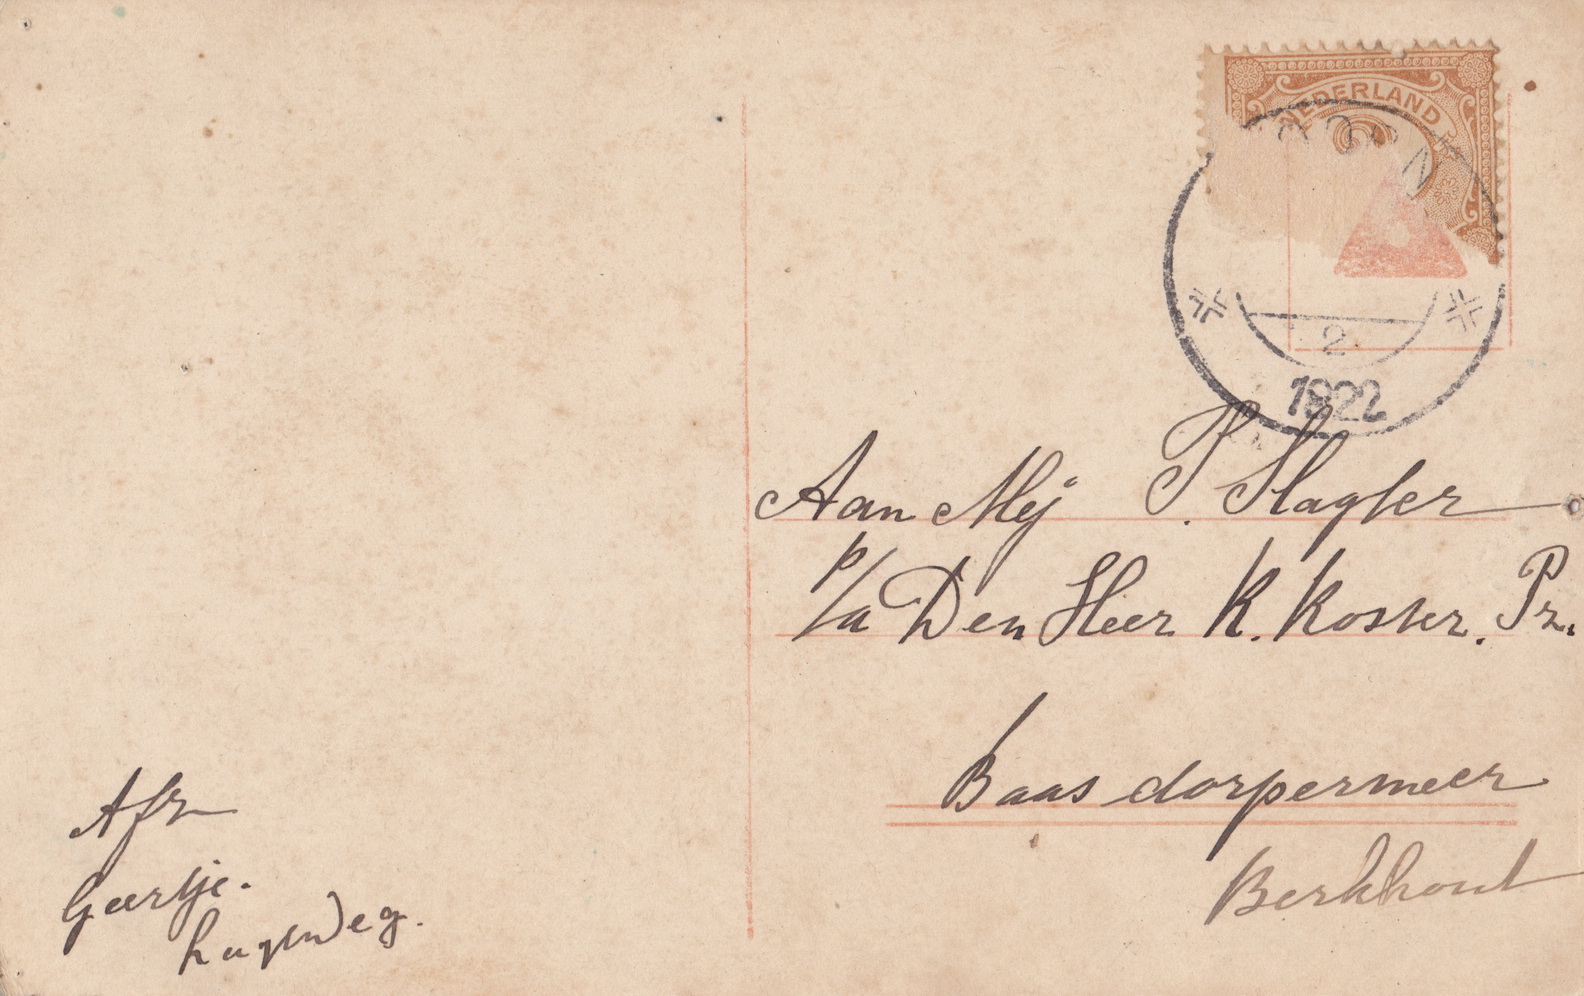 NEDERLAND
2
1922
Aan Mej P. Slagter
p/a Den Heer K. Koster. Pz.
Baasdorpermeer
Berkhout
Afz
Geertje.